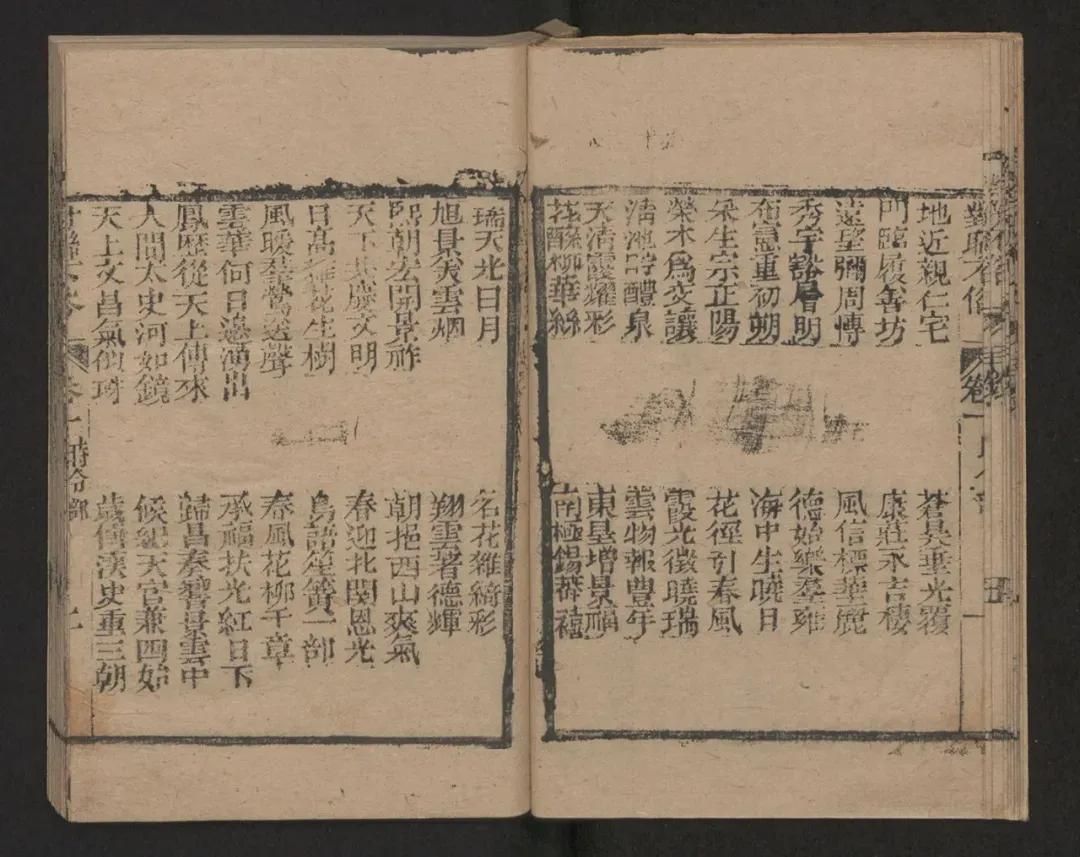 卷一
地近親仁宅
蒼昊垂光覆
門臨履善坊
康莊永吉棲
遠望彌周愽
風信標華麗
秀宇豁層明
德始樂羣雍
布憲重初朔
海中生曉日
采生宗正陽
花徑引春風
榮木為交讓
霞光徵曉瑞
清池時醴泉
雲物報豊年
天清霞耀彩
東皇增景福
花酥柳華絲
南極錫蕃禧
瑞天光日月
名花雜綺彩
旭景炎雲烟
翔雲著德輝
熙朝宏開景祚
朝挹西山爽氣
天下共慶文明
春迎北闕恩光
日高 花生樹
鳥語笙簧一部
風暖羣鶯送聲
春風花柳千章
雲華何日邊湧出
承福扶光紅日下
鳳歷從天上傳來
歸昌奏響景雲中
人間太史河如鏡
候紀天官兼四始
天上文昌氣似珠
歲傳漢史重三朝
卷一
時令部